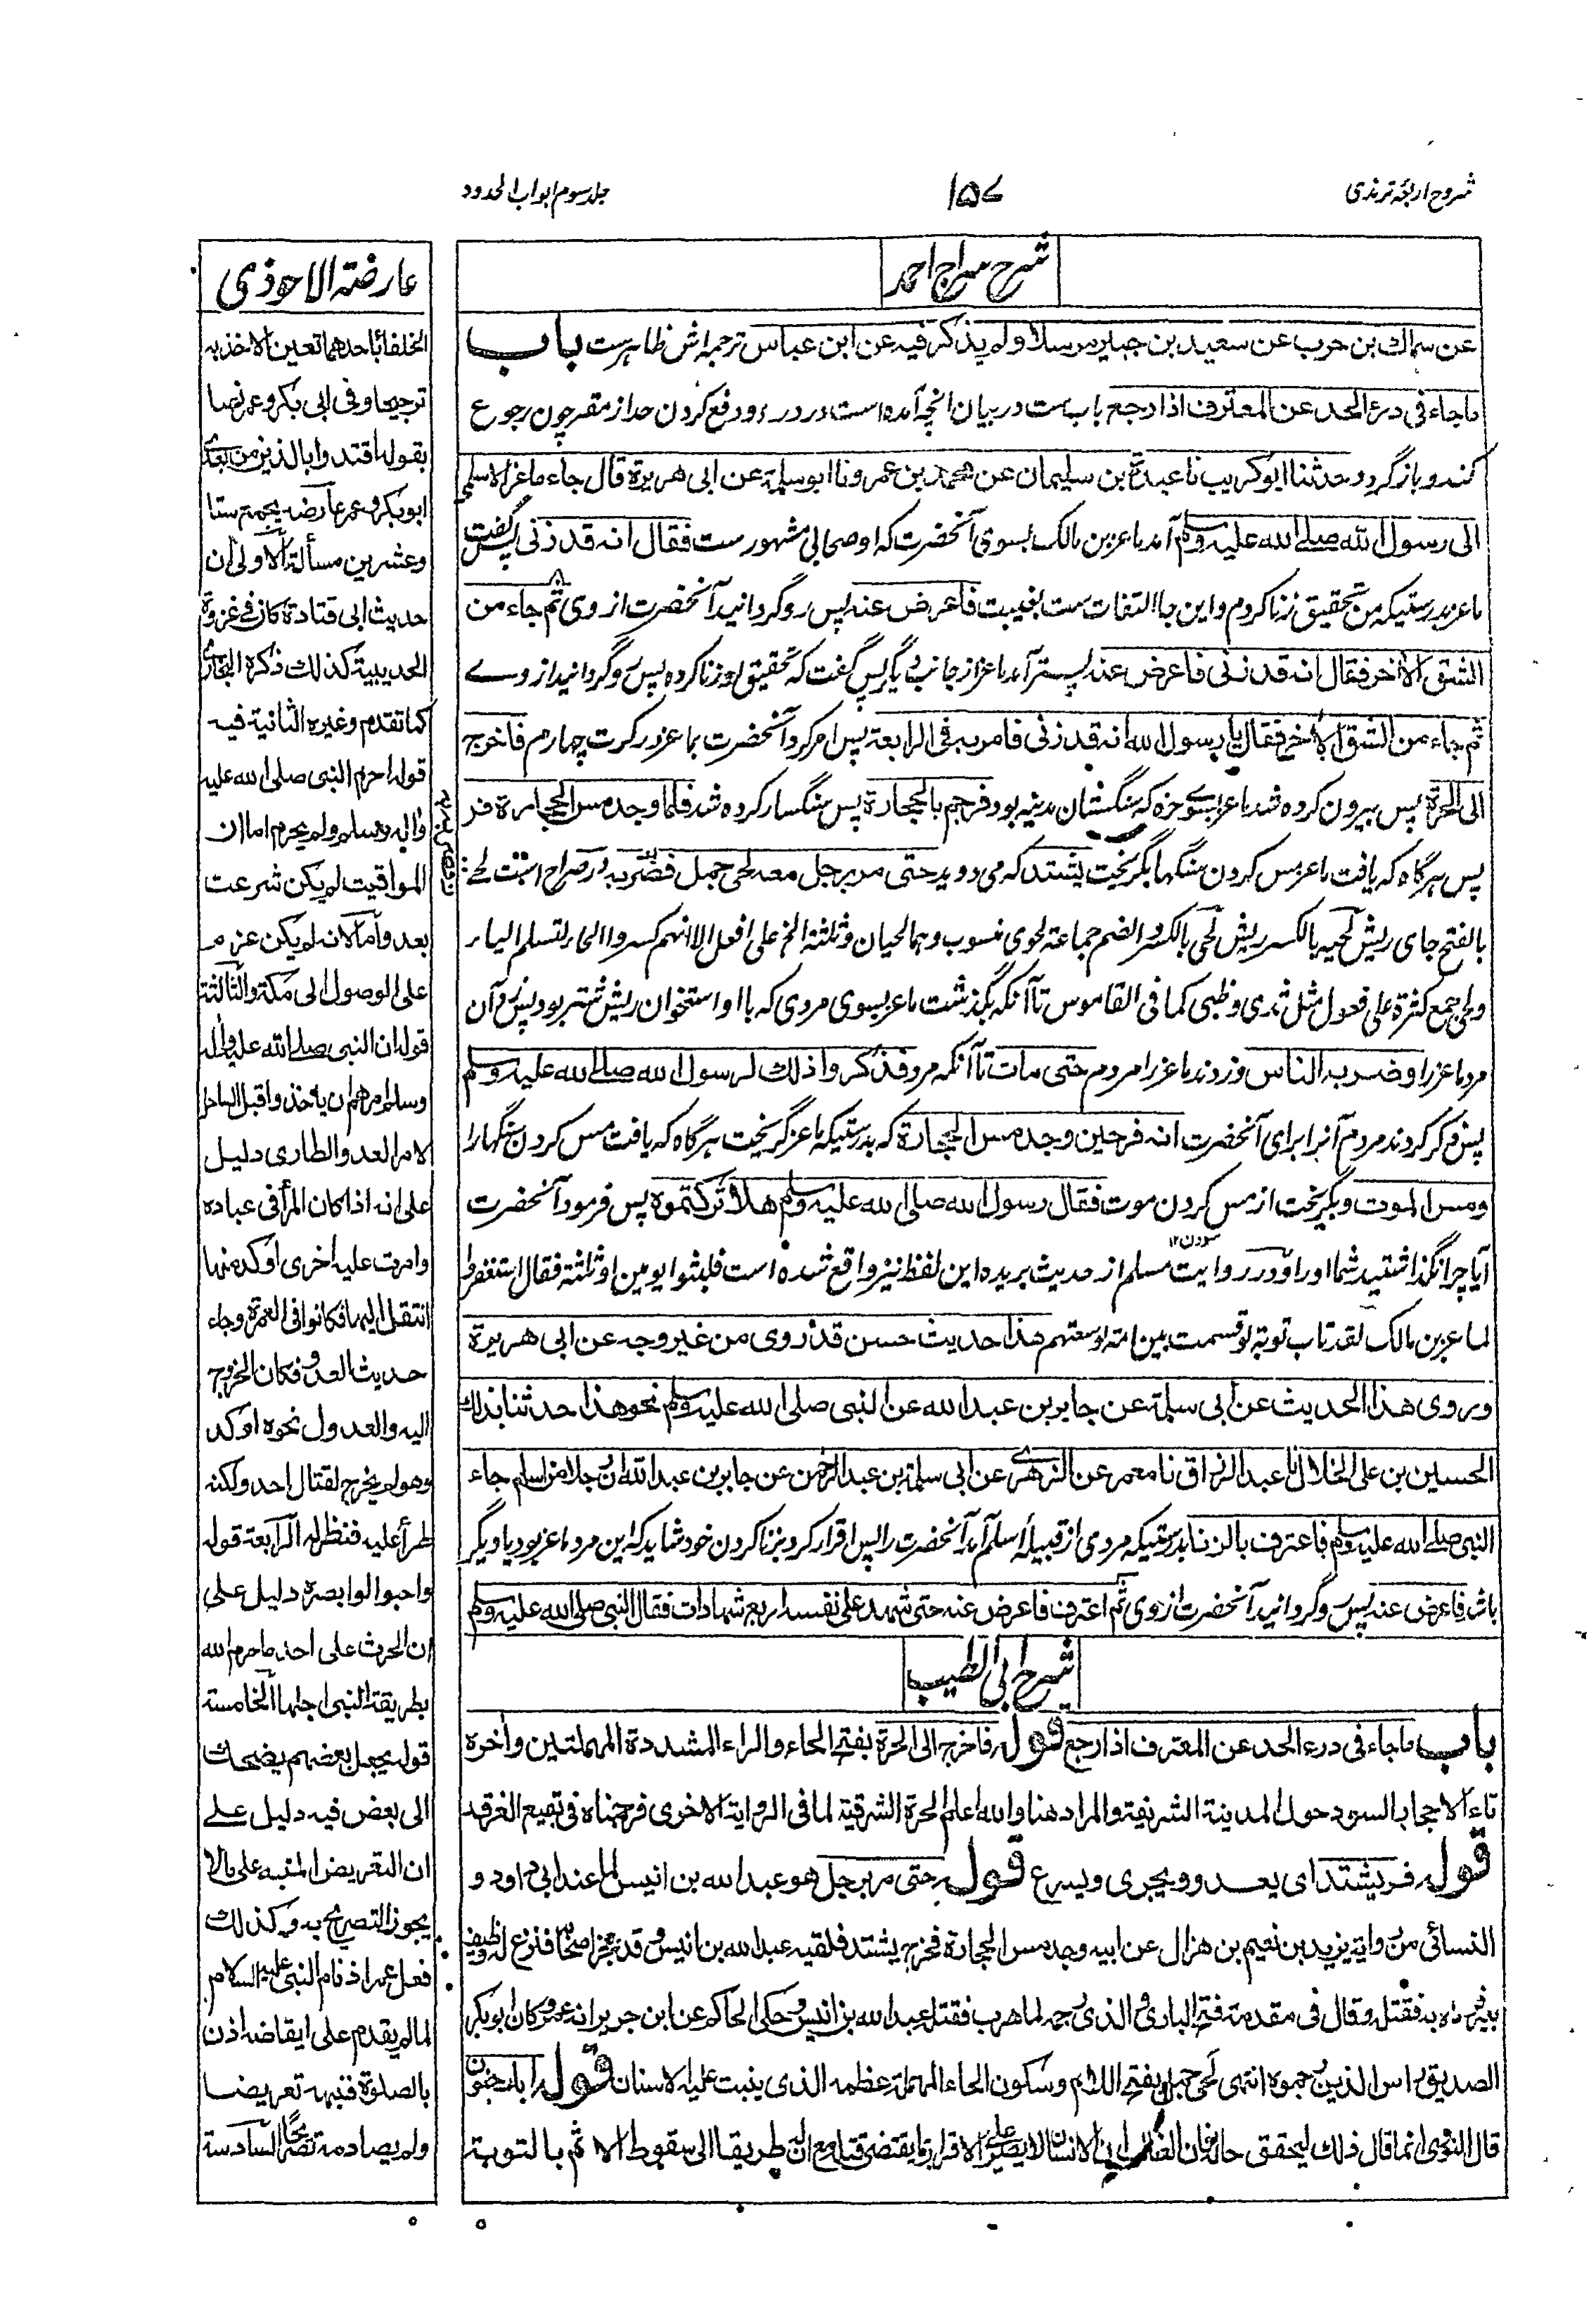 شروح اربعۂ ترمذی
۱۵۷
جلد سوم ابواب الحدود
شرح سراج احمد
عن سماك بن حرب عن سعيد بن جبير مرسلا ولم يذكر فيه عن ابن عباس ترجمہ اش ظاہرست باب
ماجاء فى درء الحد عن المعترف اذا رجع باب ست در بیان انچہ آمدہ است در درء و دفع کردن حد از مقر چون رجوع
کند و باز گردد حدثنا ابو كريب نا عبدة بن سليمان عن محمد بن عمرو نا ابو سلمة عن ابى هريرة قال جاء ماعز الاسلمى
الى رسول الله صلے الله عليه وسلم آمد ماعز بن مالک بسوی آنحضرت کہ او صحابی مشہورست فقال انه قد زنى پس گفت
ماعز بدرستیکہ من تحقیق زنا کردم و این جا التفات ست بغیبت فاعرض عنه پس رو گردانید آنحضرت از وی ثم جاء من
الشق الاخر فقال انه قد زنى فاعرض عنه پستر آمد ماعز از جانب دیگر پس گفت کہ تحقیق او زنا کردہ پس رو گردانید از وے
ثم جاء من الشق الاخر فقال يا رسول الله انه قد زنى فامر به فى الرابعة پس امر کرد آنحضرت بماعز در کرت چہارم فاخرج
الى الحرة پس بیرون کردہ شد ماعز بسوے حرہ کہ سنگستان مدینہ بود فرجم بالحجارة پس سنگسار کردہ شد فلما وجد مس الحجارة فر
پس ہرگاہ کہ یافت ماعز مس کردن سنگہا بگریخت يشتد کہ می دوید حتى مر برجل معه لحى جمل فضربه در صراح است لحے
بالفتح جای ریش لحیہ بالکسر ریش لحی بالکسر والضم جماعة لحوی منسوب وہما لحیان وثلثة الخ على افعل الا انهم كسروا الحاء لتسلم الياء
ولحی جمع کثرة على فعول مثل ثدی وظبی کما فی القاموس تا آنکہ بگذشت ماعز بسوی مردی کہ با او استخوان ریش شتر بود پس زد آن
مرد ماعز را وضربه الناس وزدند ماعز را مردم حتى مات تا آنکہ مرد فذكروا ذلك لرسول الله صلے الله عليه وسلم
پس ذکر کردند مردم آنرا برای آنحضرت انه فر حين وجد مس الحجارة کہ بدرستیکہ ماعز گریخت ہرگاہ کہ یافت مس کردن سنگہا را
ومس الموت وبگریخت از مس کردن موت فقال رسول الله صلى الله عليه وسلم هلا تركتموه پس فرمود آنحضرت
آیا چرا نگذاشتید شما اورا و در روایت مسلم از حدیث بریدہ این لفظ نیز واقع شدہ است فلبثوا يومين او ثلثة فقال استغفروا
لماعز بن مالک لقد تاب توبة لو قسمت بين امة لوسعتهم هذا حديث حسن قد روى من غير وجه عن ابى هريرة
وروى هذا الحديث عن ابى سلمة عن جابر بن عبد الله عن النبى صلى الله عليه وسلم نحو هذا حدثنا بذلك
الحسين بن على الخلال نا عبد الرزاق نا معمر عن الزهرى عن ابى سلمة بن عبد الرحمن عن جابر بن عبد الله ان رجلا من اسلم جاء
النبى صلے الله عليه وسلم فاعترف بالزنا بدرستیکہ مردی از قبیلۂ اسلم آمد آنحضرت را پس اقرار کرد بزنا کردن خود شاید کہ این مرد ماعز بود یا دیگر
باشد فاعرض عنه پس رو گردانید آنحضرت از وی ثم اعترف فاعرض عنه حتى شهد على نفسه اربع شهادات فقال النبى صلى الله عليه وسلم
شرح ابی الطیب
باب ماجاء فى درء الحد عن المعترف اذا رجع قوله فاخرج الى الحرة بفتح الحاء والراء المشددة المهملتين واخره
تاء الاحجار السود حول المدينة الشريفة والمراد هنا والله اعلم الحرة الشرقية لما فى الرواية الاخرى فرجمناه فى بقيع الغرقد
قوله فر يشتد اى يعدو ويجرى ويسرع قوله حتى مر برجل هو عبد الله بن انيس لما عند ابى داود و
النسائى من رواية يزيد بن نعيم بن هزال عن ابيه وجد مس الحجارة فخرج يشتد فلقيه عبد الله بن انيس وقد عجز اصحابه فنزع له وظيف
بعير فرماه به فقتله وقال فى مقدمة فتح البارى والذى رجمه لما هرب فقتله عبد الله بن انيس وحكى الحاكم عن ابن جرير انه عمر وكان ابو بكر
الصديق راس الذين رجموه انتهى لحى جمل بفتح اللام وسكون الحاء المهملة عظمه الذى ينبت عليه الاسنان قوله ابك جنون
قال النووى انما قال ذلك ليحقق حاله فان الغالب ان الانسان لا يصر على الاقرار بما يقتضى قتله مع ان له طريقا الى سقوط الاثم بالتوبة
عارضة الاحوذی
الخلفاء باحدهما تعين الاخذ به
ترجيحا وفى ابى بكر وعمر نصا
بقوله اقتدوا بالذين من بعدى
ابو بكر وعمر عارضه يجمع ستا
وعشرين مسألة الاولى ان
حديث ابى قتادة كان فى غزوة
الحديبية كذلك ذكره البخارى
كما تقدم وغيره الثانية فيه
قوله احرم النبى صلى الله عليه
واله وسلم ولم يحرم اما ان
المواقيت لم يكن شرعت
بعد واما لانه لم يكن عزم
على الوصول الى مكة والثالثة
قوله ان النبى صلے الله عليه واله
وسلم امرهم ان ياخذوا قبل الساحل
لامر العدو الطارى دليل
على انه اذا كان المرأ فى عباده
وامرت عليه اخرى اوكد منها
انتقل اليها فكانوا فى العمرة وجاء
حديث العدو فكان الخروج
اليه والعدول نحوه اوكد
وهو لم يخرج لقتال احد ولكنه
طرأ عليه فنظر له الرابعة قوله
واحبوا لو ابصره دليل على
ان الحرث على احد ما حرم الله
بطريقة النبى اجلها الخامسة
قوله يجعل بعضهم يضحك
الى بعض فيه دليل على
ان التعريض المنبه على ما لا
يجوز التصريح به وكذلك
فعل عمر اذ نام النبى عليه السلام
لما لم يقدم على ايقاضه اذن
بالصلوة فنبهه تعريضا
ولم يصادمه تصريحا السادسة